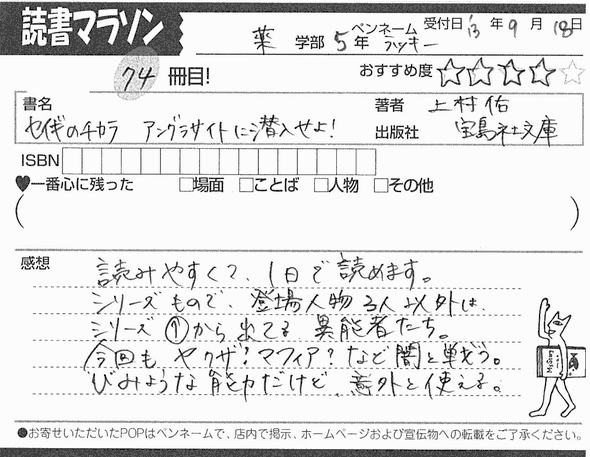 読書マラソン
受付日'13年9月18日
薬学部5年 ペンネーム ラッキー
74冊目!
おすすめ度 ★★★★☆
書名 セイギのチカラ アングラサイトに潜入せよ!
著者 上村佑
出版社 宝島社文庫
ISBN
♥一番心に残った □場面 □ことば □人物 □その他
( )
感想
読みやすくて、1日で読めます。
シリーズもので、登場人物3人以外は、
シリーズ①から出てる異能者たち。
今回もヤクザ?マフィア?など闇と戦う。
びみょうな能力だけど、意外と使える。
●お寄せいただいたPOPはペンネームで、店内で掲示、ホームページおよび宣伝物への転載をご了承ください。